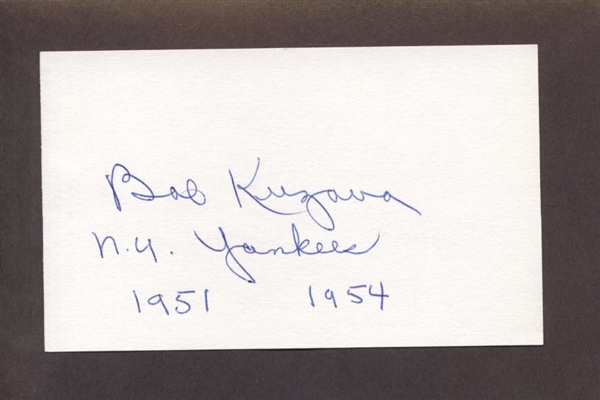 Bob Kuzava
N.Y. Yankees
1951 1954